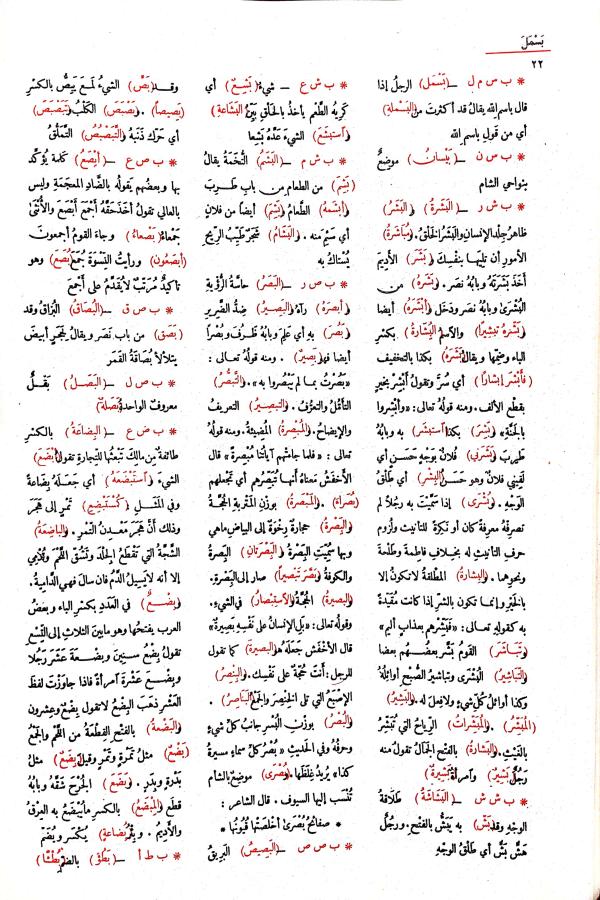 بَسْمَلَ
٢٢
* ب س م ل – (بَسْمَلَ) الرجلُ إذا
قال باسم الله يقال قد أكثرتَ من (البَسْملة)
أي من قول باسم الله
* ب س ن – (بَيْسانُ) موضعٌ
بنواحي الشام
* ب ش ر – (البَشَرَةُ) (البَشَرُ)
ظاهرُ جلد الإنسان والبَشَرُ الخَلْقُ. و(مُباشَرةُ)
الأمور أن تليَها بنفسِك (بَشَرَ) الأديمَ
أخذ بَشَرَتَه وبابُه نَصَر. (بَشَرَه) من
البُشْرَى وبابُه نَصَر ودَخَل (أبْشَرَه) أيضا
(بَشَّرَه تَبْشيرًا) والاسم (البِشارَةُ) بكسر
الباء وضمِّها ويقال (بَشَرَه) بكذا بالتخفيف
(فأَبْشَرَ إبشارًا) أي سُرَّ وتقول أَبْشِرْ بخيرٍ
بقطع الألف. ومنه قولُه تعالى: «وأبْشِروا
بالجنّة» (بَشِرَ) بكذا استَبشَر به وبابُه
طَرِبَ (بَشَرَني) فُلانٌ بوجهٍ حَسَنٍ أي
لَقِيَني فلانٌ وهو حَسَنُ (البِشْرِ) أي طَلْقُ
الوجهِ. (بُشْرَى) إذا سَمَّيتَ به رجُلاً لم
تصرِفْهُ معرِفةً كان أو نَكِرةً للتأنيث ولزوم
حرف التأنيث له بخلاف فاطِمةَ وطَلْحةَ
ونحوِهما. (البِشارةُ) المطلَقةُ لا تكون إلا
بالخير وإنما تكون بالشرِّ إذا كانت مُقَيَّدةً
به كقولِه تعالى: «فبَشِّرْهم بعذابٍ أليم»
(تَبَاشَرَ) القومُ بَشَّرَ بعضُهم بعضا
(التَّباشِيرُ) البُشْرَى وتباشيرُ الصُّبْح أوائلُهُ
وكذا أوائلُ كلِّ شيءٍ ولا فِعلَ له. (البَشِيرُ)
(المُبَشِّرُ). (المُبَشِّراتُ) الرياحُ التي تُبَشِّرُ
بالغَيث. (البَشارةُ) بالفتح الجمالُ تقول منه
رجُلٌ (بَشِيرٌ) وامرأةٌ (بَشِيرةٌ)
* ب ش ش – (البَشَاشَةُ) طَلاقةُ
الوجهِ وقد (بَشَّ) به يَبَشُّ بالفتح. ورجُلٌ
هَشٌّ بَشٌّ أي طَلْقُ الوجْهِ
* ب ش ع – شيءٌ (بَشِعٌ) أي
كَرِيهُ الطَّعْمِ يأخذُ بالحَلْقِ بَيِّنُ (البَشاعةِ)
(استَبشَع) الشيءَ عَدَّه بَشِعا
* ب ش م – (البَشَمُ) التُّخَمةُ يقالُ
(بَشِمَ) من الطعام من باب طَرِبَ
(أبشَمَه) الطَّعامُ (بَشِمَ) أيضا من فلان
أي سَئِمَ منه. (البَشَامُ) شجَرٌ طيِّبُ الرِّيحِ
يُسْتاكُ به
* ب ص ر – (البَصَرُ) حاسَّةُ الرُّؤيةِ
(أبصَرَهُ) رآه (البَصِيرُ) ضِدُّ الضَّريرِ
(بَصُرَ) بهِ أي عَلِمَ وبابُه ظَرُفَ وبُصْرًا
أيضا فهو (بَصيرٌ). ومنه قولُه تعالى:
«بَصُرْتُ بما لم يَبْصُروا به». (التَّبَصُّرُ)
التأمُّلُ والتعرُّفُ. (التَّبصيرُ) التعريفُ
والإيضاحُ. (المُبْصِرةُ) المُضِيئةُ. ومنه قولُه
تعالى: «فلما جاءتهم آياتُنا مُبْصِرةً» قال
الأخفَشُ معناه أنها تُبَصِّرُهم أي تجعلهم
(بُصَراءَ). (المَبْصَرةُ) بوزن المَتْرَبة الحُجَّةُ
(البَصْرةُ) حجارةٌ رِخْوةٌ إلى البياض ما هي
وبها سُمِّيَت البَصْرةُ (البَصْرَتانِ) البَصرةُ
والكوفةُ (بَصَّرَ تَبْصِيرًا) صار إلى البَصْرةِ.
(البَصِيرةُ) الحُجَّةُ (الاستِبصارُ) في الشيءِ.
وقولُه تعالى: «بَلِ الإنسانُ على نَفْسِه بَصِيرةٌ»
قال الأخفَشُ جعله هو (البصيرةَ) كما تقول
للرجل: أنت حُجَّةٌ على نَفْسِك. (البِنْصِرُ)
الإصْبَعُ التي تلي الخِنْصِرَ والجمع (البَناصِرُ).
(البُصْرُ) بوزنِ البُسْرِ جانبُ كلِّ شيءٍ
وحرفُهُ وفي الحديثِ «بُصْرُ كلِّ سماءٍ مسيرةُ
كذا» يُريدُ غِلَظَها. (بُصْرَى) موضِعٌ بالشام
تُنْسَب إليها السيوف. قال الشاعر:
* صفائحُ بُصْرَى أخلَصَتْها قُيُونُها *
* ب ص ص – (البَصِيصُ) البَرِيقُ
وقد (بَصَّ) الشيءُ لَمَع يَبِصُّ بالكسرِ
(بَصِيصاً). (بَصْبَصَ) الكَلْبُ (تَبَصْبَصَ)
أي حَرَّك ذَنَبَهُ (التَّبَصْبُصُ) التَّمَلُّقُ
* ب ص ع – (أبْصَعُ) كلمة يُؤكَّد
بها وبعضُهم يقولُه بالضَّادِ المعجَمةِ وليس
بالعالي تقولُ أخَذَ حَقَّه أجْمَعَ أبْصَعَ والأُنثَى
جَمْعاءُ (بَصْعاءُ) وجاءَ القومُ أجمعونَ
(أبصَعُونَ) ورأيتُ النِّسْوةَ جُمَعَ (بُصَعَ) وهو
تأكيدٌ مُرَتَّبٌ لا يُقدَّمُ على أجْمَعَ
* ب ص ق – (البُصَاقُ) البُزَاقُ وقد
(بَصَقَ) من باب نَصَر ويقالُ لحجَرٍ أبيضَ
يتلألأُ بُصَاقةُ القَمَرِ
* ب ص ل – (البَصَلُ) بَقْلٌ
معروفٌ الواحدةُ (بَصَلةٌ)
* ب ض ع – (البِضاعَةُ) بالكسرِ
طائفةٌ من مالِكَ تَبْعَثُها للتجارةِ تقول (أبْضَعَ)
الشيءَ (استَبْضَعَهُ) أي جَعَلَهُ بِضاعةً
وفي المثَلِ (كَمُسْتَبْضِعِ) تَمْرٍ إلى هَجَرَ
وذلك أنَّ هَجَرَ مَعْدِنُ التَّمْرِ. (الباضِعَةُ)
الشَّجَّةُ التي تَقْطَعُ الجِلدَ وتَشُقُّ اللَّحْمَ وتُدْمِي
إلا أنه لا يَسيلُ الدَّمُ فإن سالَ فهي الدَّامِيةُ.
(بِضْعٌ) في العَدَدِ بكسرِ الباءِ وبعضُ
العربِ يَفتحُها وهو ما بينَ الثلاثِ إلى التِّسْعِ
تقولُ بِضْعُ سنينَ وبِضْعةَ عَشَرَ رَجُلاً
وبِضْعَ عَشْرةَ امرأةً فإذا جاوَزْتَ لفظَ
العَشْرِ ذهبَ البِضْعُ لا تقول بِضْعٌ وعِشرون
(البَضْعَةُ) بالفتحِ القِطعةُ من اللَّحْمِ والجمعُ
(بَضْعٌ) مثلُ تَمْرةٍ وتَمْرٍ وقيل (بِضَعٌ) مثلُ
بَدْرةٍ وبِدَرٍ. (بَضَعَ) الجُرْحَ شَقَّهُ وبابُهُ
قطع (المِبْضَعُ) بالكسرِ ما يُبْضَعُ به العِرْقُ
والأدِيمُ. و(بِئْرُ بُضاعَةَ) يُكسَر ويُضَم
* ب ط أ – (بَطُؤَ) بالضم (بُطْئا)